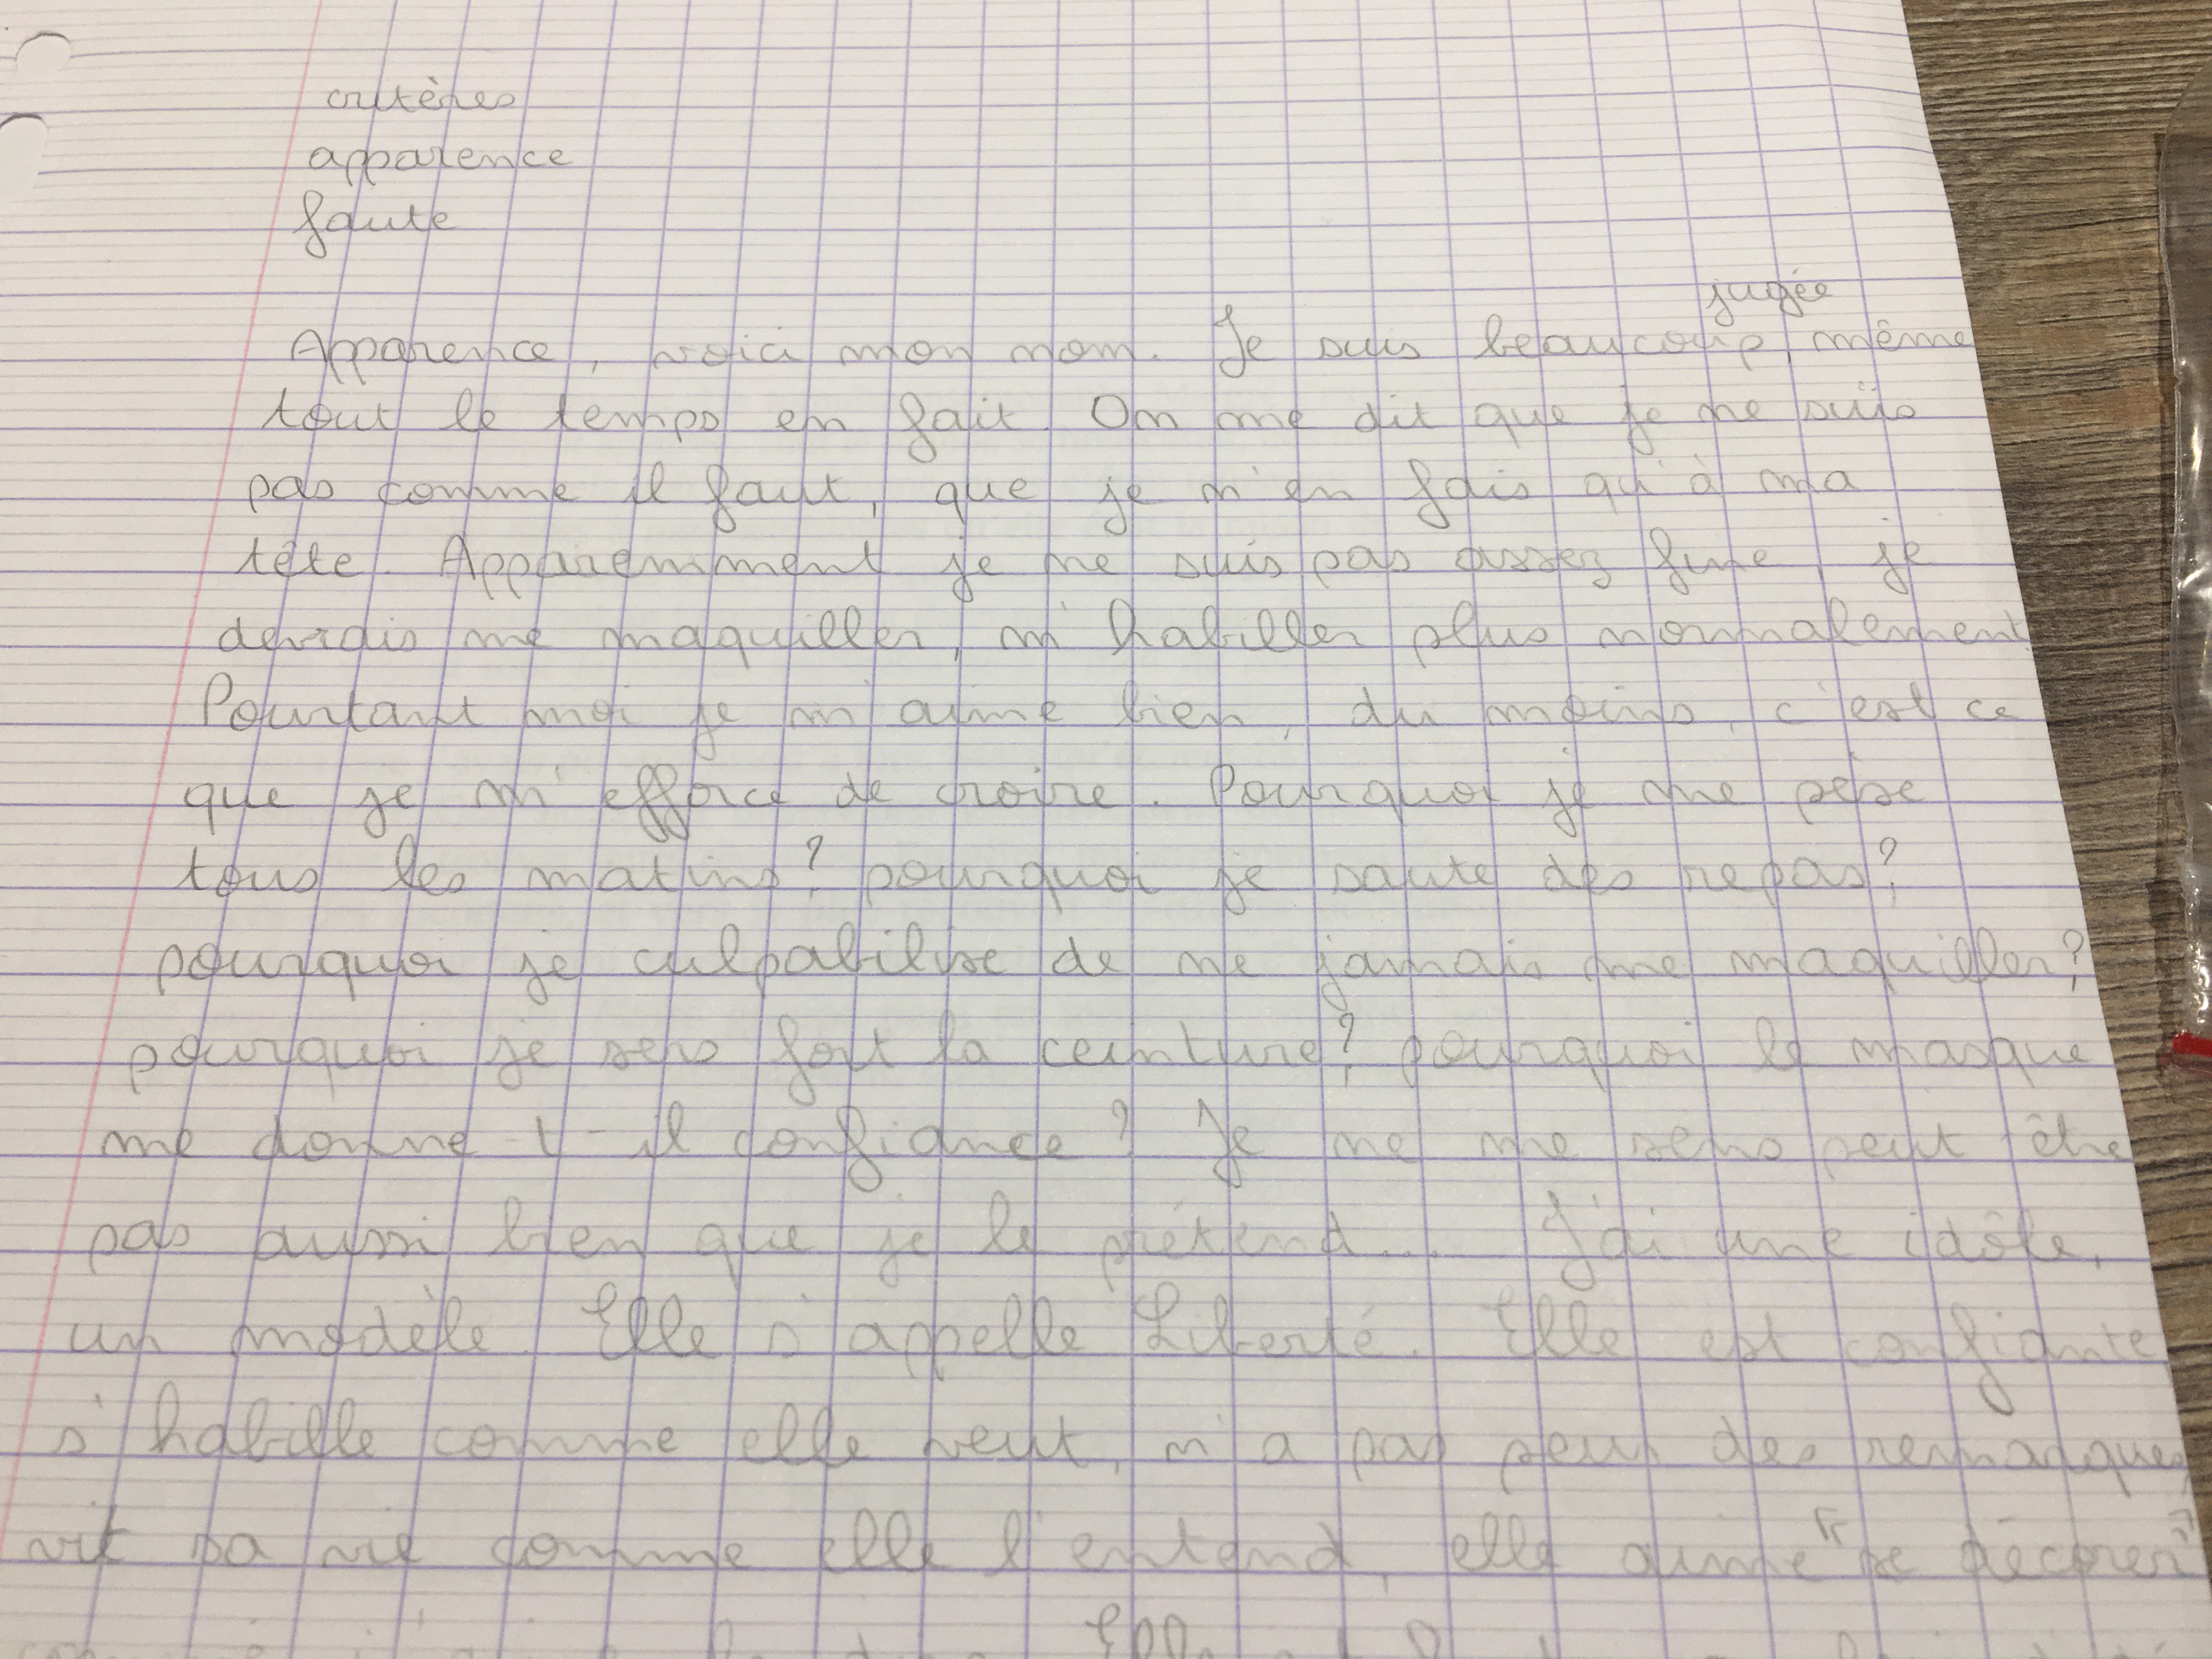 critères
apparence
faute
jugée
Apparence, voici mon nom. Je suis beaucoup, même
tout le temps en fait. On me dit que je ne suis
pas comme il faut, que je m'en fais qu'à ma
tête. Apparemment je ne suis pas assez fine, je
devrais me maquiller, m'habiller plus normalement
Pourtant moi je m'aime bien, du moins, c'est ce
que je m'efforce de croire. Pourquoi je me pèse
tous les matins? pourquoi je saute des repas?
pourquoi je culpabilise de ne jamais me maquiller?
pourquoi je sers fort la ceinture? pourquoi le masque
me donne-t-il confiance? Je ne me sens peut être
pas aussi bien que je le prétend... J'ai une idôle,
un modèle. Elle s'appelle Liberté. Elle est confiante
s'habille comme elle veut, n'a pas peur des remarques
vit sa vie comme elle l'entend, elle aime "se décorer"
Elle